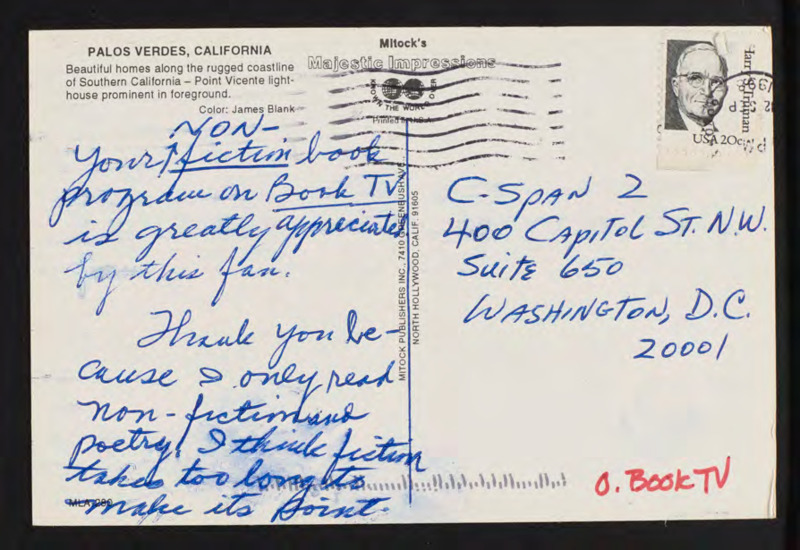 PALOS VERDES, CALIFORNIA
Beautiful homes along the rugged coastline
of Southern California – Point Vicente light-
house prominent in foreground.
Color: James Blank
Mitock's
Majestic Impressions
KNOWN THE WORLD
Printed U.S.A.
MITOCK PUBLISHERS INC., 7410 GREENBUSH AVE.,
NORTH HOLLYWOOD, CALIF. 91605
Harry S. Truman
USA 20c
NON-
Your fiction book
program on Book TV
is greatly appreciated
by this fan.
Thank you be-
cause I only read
non-fiction and
poetry. I think fiction
takes too long to
make its point.
C-SPAN 2
400 CAPITOL ST. N.W.
SUITE 650
WASHINGTON, D.C.
20001
O. BOOK TV